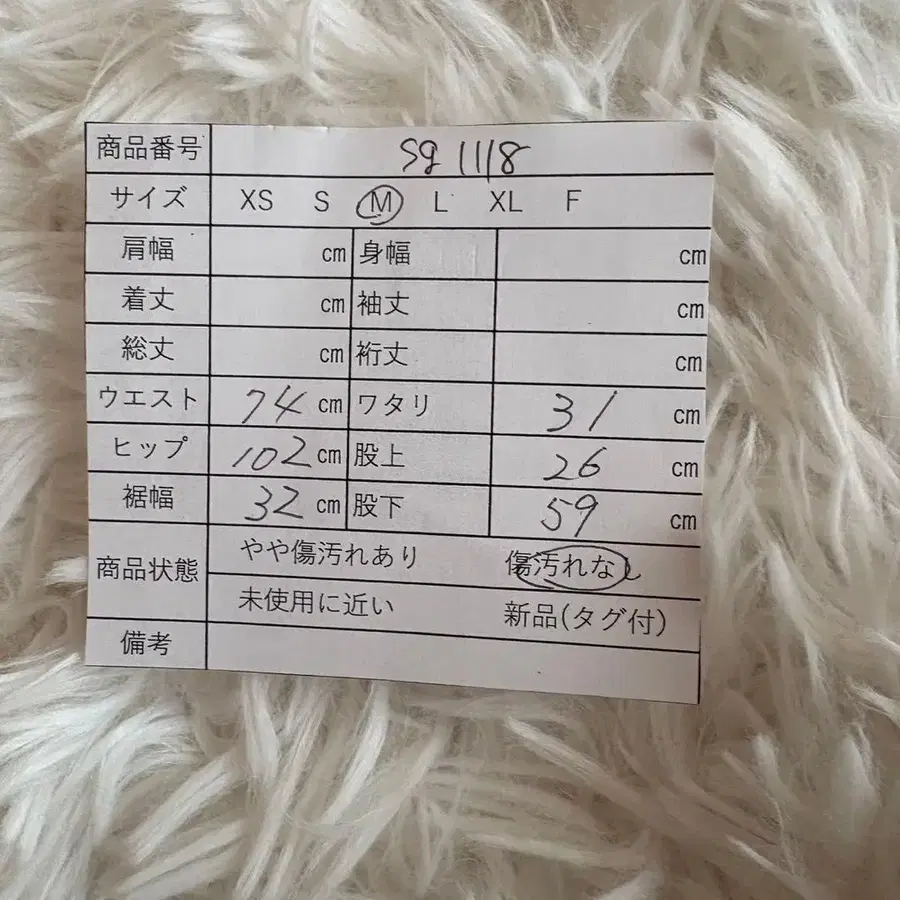 商品番号 Sg 11/8
サイズ XS S M L XL F
肩幅 cm 身幅 cm
着丈 cm 袖丈 cm
総丈 cm 裄丈 cm
ウエスト 74 cm ワタリ 31 cm
ヒップ 102 cm 股上 26 cm
裾幅 32 cm 股下 59 cm
商品状態 やや傷汚れあり 傷汚れなし
未使用に近い 新品(タグ付)
備考